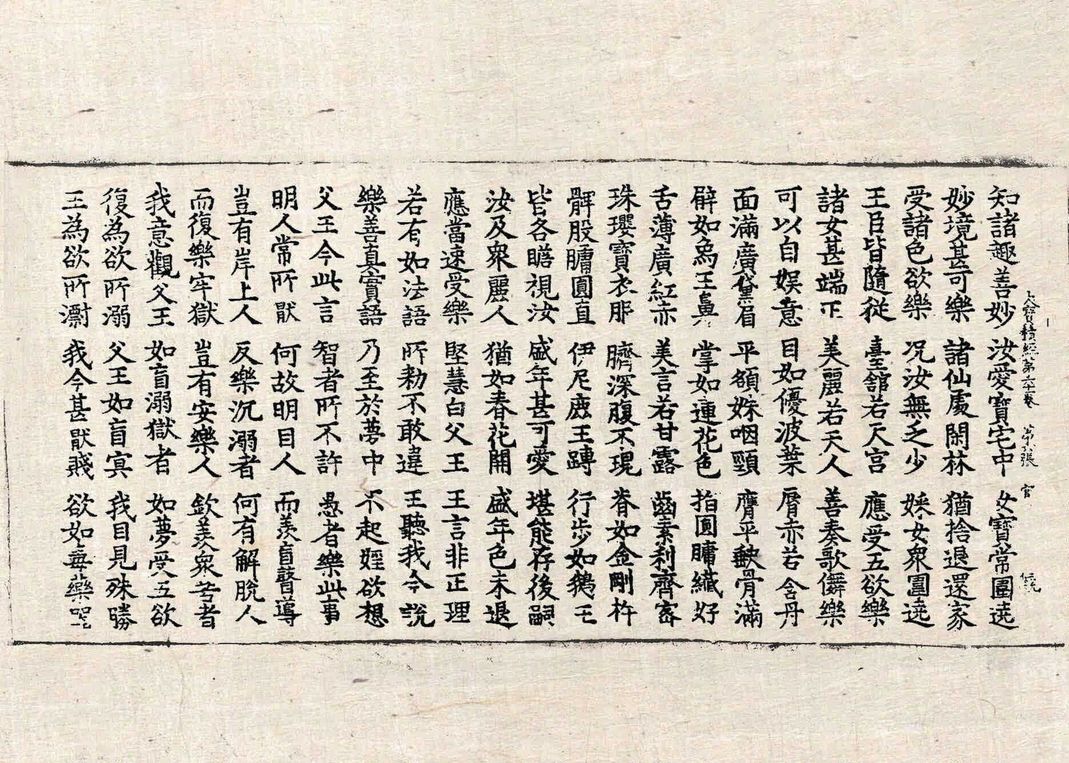 大寶積經第六十卷 第六張 官
知諸趣善妙 汝愛寶宅中 女寶常圍遶
妙境甚可樂 諸仙處閑林 猶捨退還家
受諸色欲樂 况汝無乏少 婇女衆圍遶
王臣皆隨從 臺舘若天宮 應受五欲樂
諸女甚端正 美麗若天人 善奏歌儛樂
可以自娛意 目如優波葉 脣赤若含丹
面滿廣黛眉 平額姝咽頸 膺平髃骨滿
臂如烏王鼻 掌如蓮花色 指圓𦟛纖好
舌薄廣紅赤 美言若甘露 齒素利齊密
珠瓔寶衣服 臍深腹不現 脊如金剛杵
髀股𦟛圓直 伊尼鹿王蹲 行步如鵝王
皆各瞻視汝 盛年甚可愛 堪能存後嗣
汝及衆麗人 猶如春花開 盛年色未退
應當速受樂 堅慧白父王 王言非正理
若有如法語 所勑不敢違 王聽我今說
樂善真實語 乃至於夢中 不起婬欲想
父王今此言 智者所不許 愚者樂此事
明人常所猒 何故明目人 而羨盲瞽導
豈有岸上人 反樂沉溺者 何有解脫人
而復樂牢獄 豈有安樂人 欽羨衆苦者
我意觀父王 如盲溺獄者 如夢受五欲
復為欲所溺 父王如盲冥 我目見殊勝
王為欲所漂 我今甚猒賤 欲如毒藥器